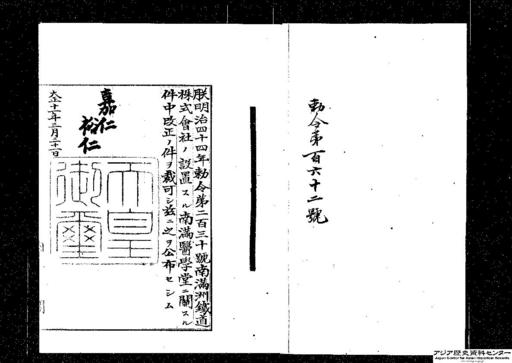 勅令第百六十二號
朕明治四十四年勅令第二百三十號南滿洲鐵道
株式會社ノ設置スル南滿醫學堂ニ關スル
件中改正ノ件ヲ裁可シ茲ニ之ヲ公布セシム
嘉仁
裕仁
大正十一年三月三十一日
天皇
御璽
アジア歴史資料センター
Japan Center for Asian Historical Records